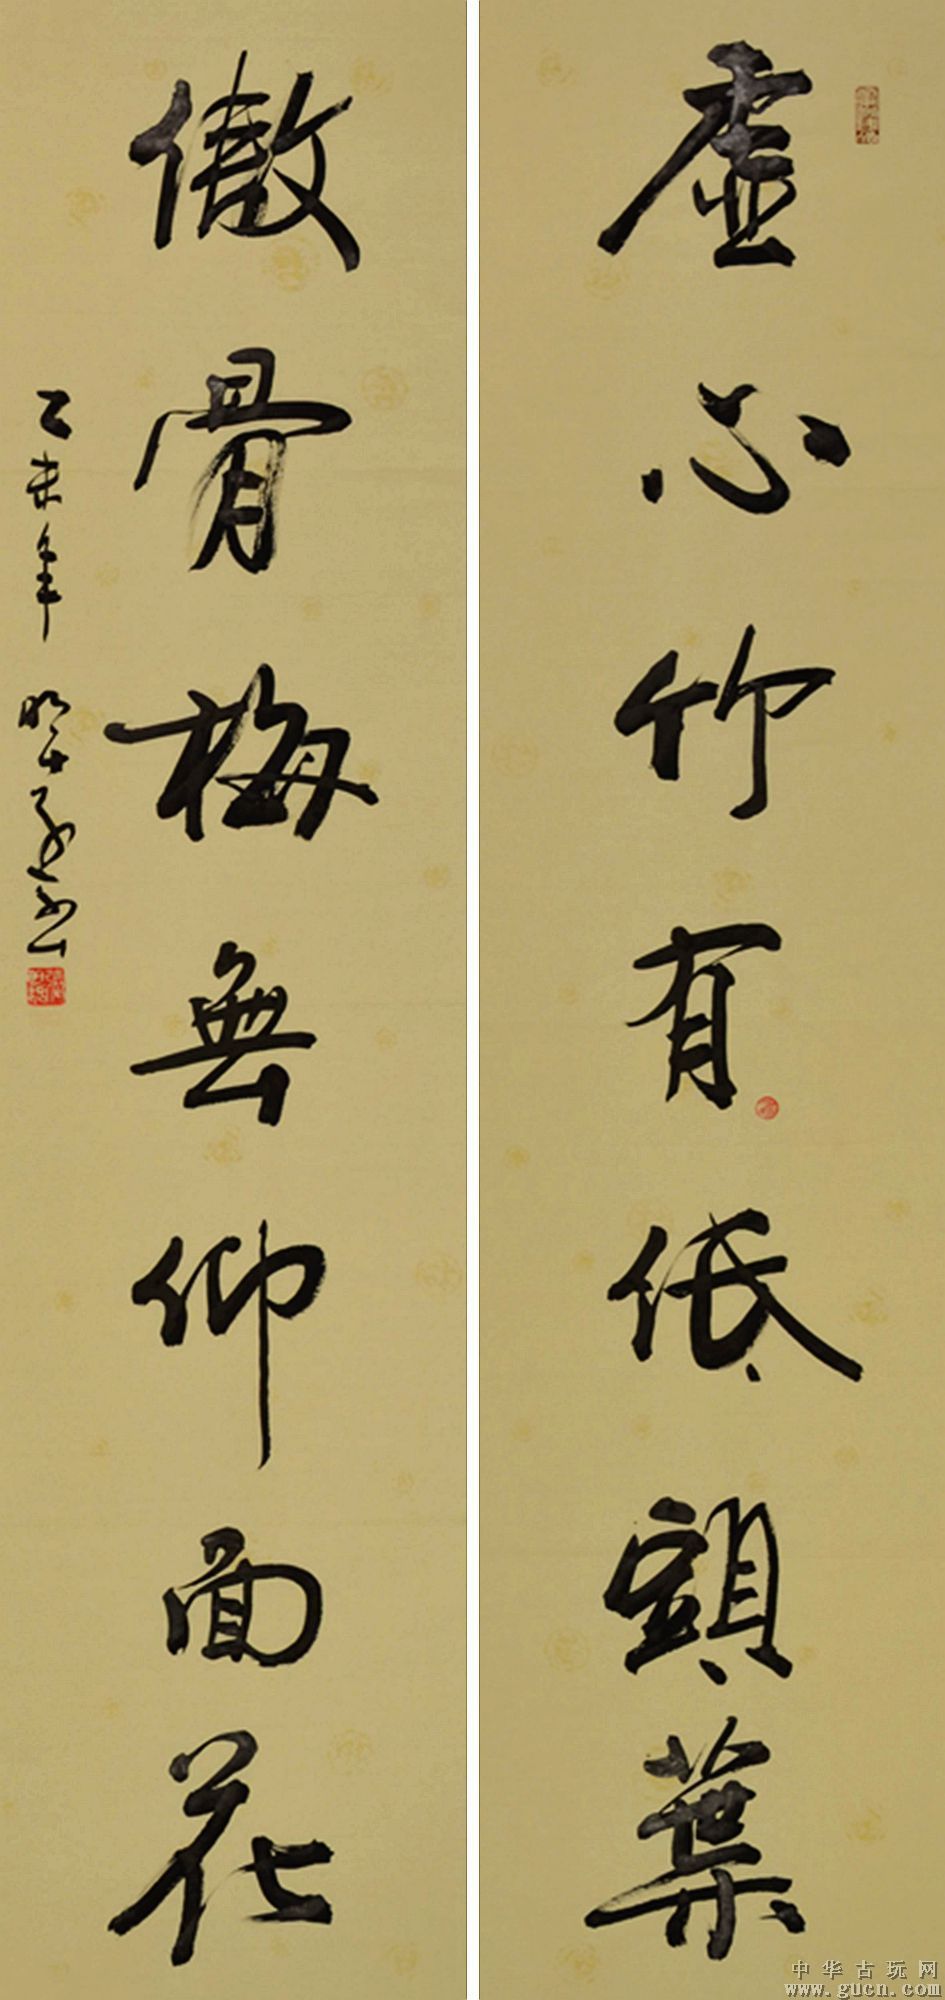 虚心竹有低頭葉
傲骨梅無仰面花
乙未年
中华古玩网
www.gucn.com